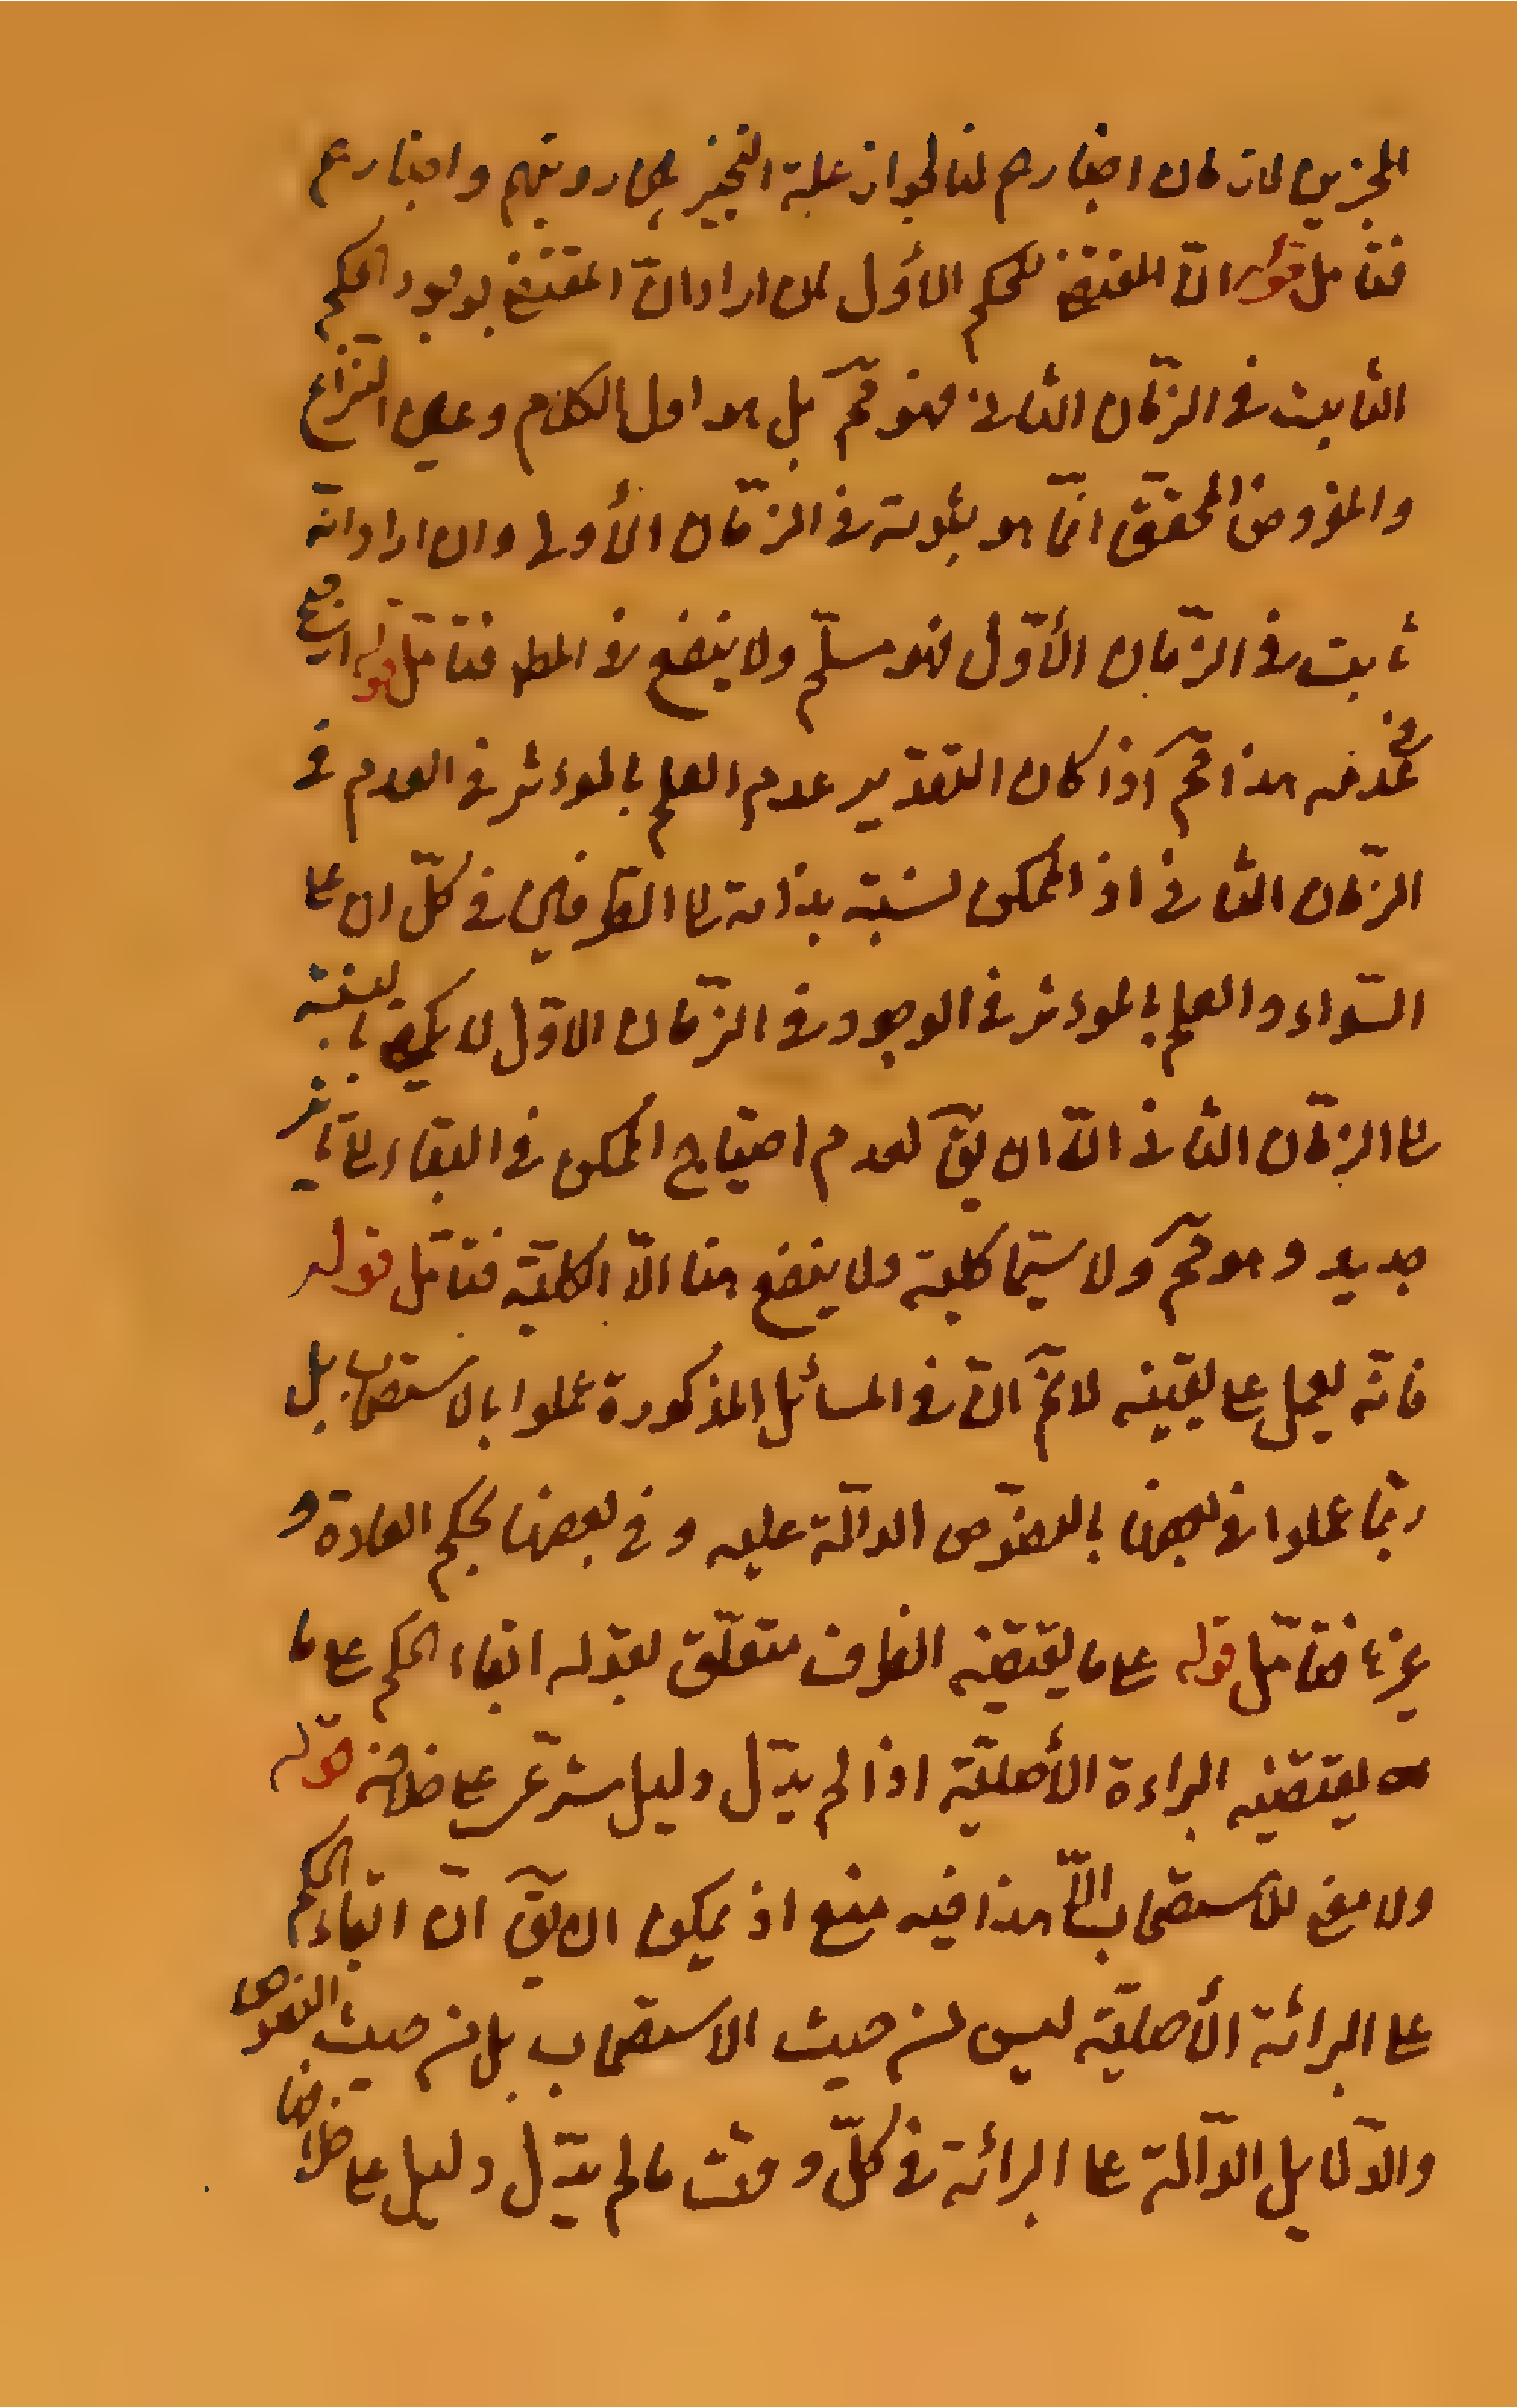 المخبرين لان كان اخبارهم لنا لجواز علية التحيز بين رويتهم واخبارهم
فتأمل قوله انّ المقتضى للحكم الأوّل ان اراد انّ المقتضى لوجود الحكم
الثابت فى الزمّان الثانى فهو مم بل هو اول الكلام وعين النزاع
والمفروض المحقق انّما هو ثبوته فى الزمّان الأول وان اراد انّه
ثابت فى الزمّان الأوّل فهو مسلّم ولا ينفع فى المط فتأمّل قوله ارتفع
فى عدمه هذا مم اذا كان التقدير عدم العلم بالموءثر فى العدم فى
الزمّان الثانى اذ الممكن نسبته بذاته الى الطرفين فى كلّ ان على
السّواء والعلم بالموءثر فى الوجود فى الزمّان الاوّل لا يكفى بالنسبة
الى الزمّان الثانى الّا ان يق لعدم احتياج الممكن فى البقاء الى تأثير
جديد وهو مم ولا سيّما كلية ولا ينفع هنا الّا الكليّة فتأمّل قوله
فانّه يعمل على يقينه لا نم انّ فى المسائل المذكورة عملوا بالاستصحاب بل
ربّما عملوا فى بعضها بالنصوّص الدالّة عليه وفى بعضها بحكم العادة و
غيرها فتأمّل قوله على ما يقتضيه الظرف متعلّق بقوله ابقاء الحكم على ما
يقتضيه البراءة الأصليّة اذا لم يدّل دليل شرعّى على خلافه قوله
ولا معنى للاستصحاب الّا هذا فيه منع اذ يمكن ان يق انّ ابقاء الحكم
على البرائة الأصليّة ليس من حيث الاستصحاب بل من حيث النصوص
والدّلايل الدّالة على البرائة فى كلّ وقت ما لم يدّل دليل على خلافها